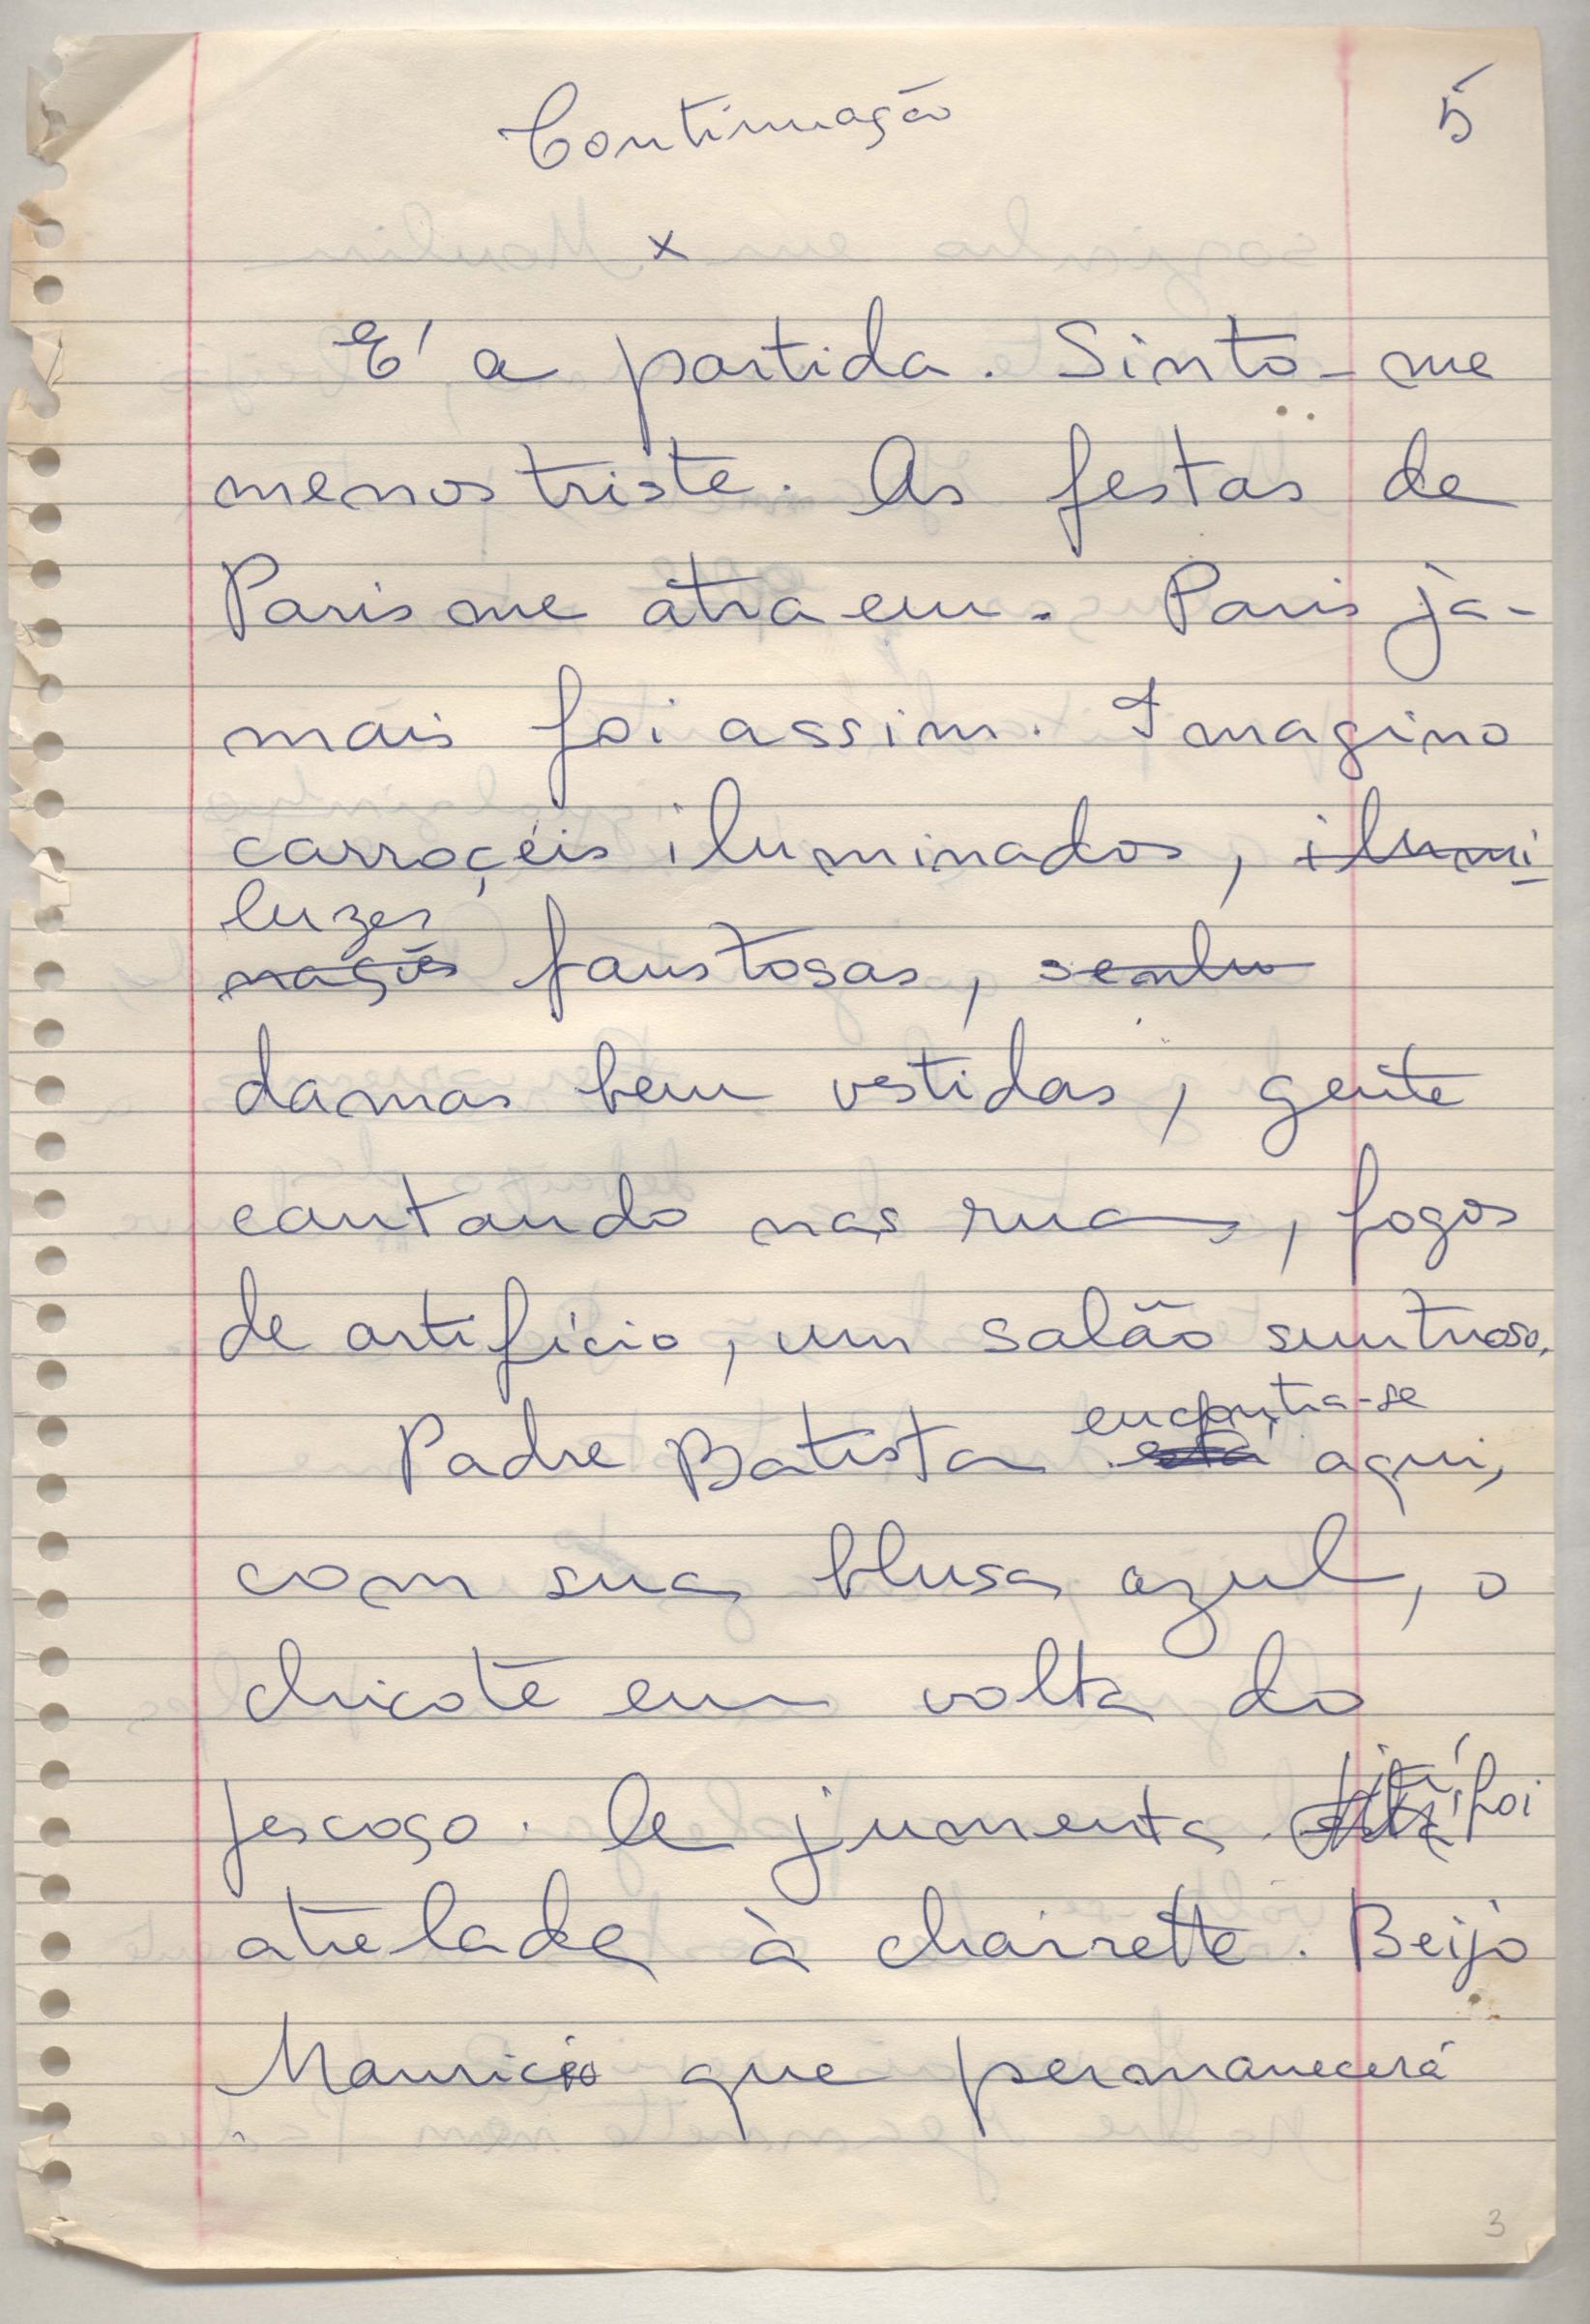 Continuação 5
x
E' a partida. Sinto-me
menos triste. As festas de
Paris me atraem. Paris ja-
mais foi assim. Imagino
carroçéis iluminados, ilumi
luzes
naçõs faustosas, senho
damas bem vestidas, gente
cantando nas ruas, fogos
de artifício, um salão suntuoso.
encontra-se
Padre Batista está aqui,
com sua blusa azul, o
chicote em volta do
pescoço. A jumenta já foi
atrelada à chairette. Beijo
Maurício que permanecerá
3